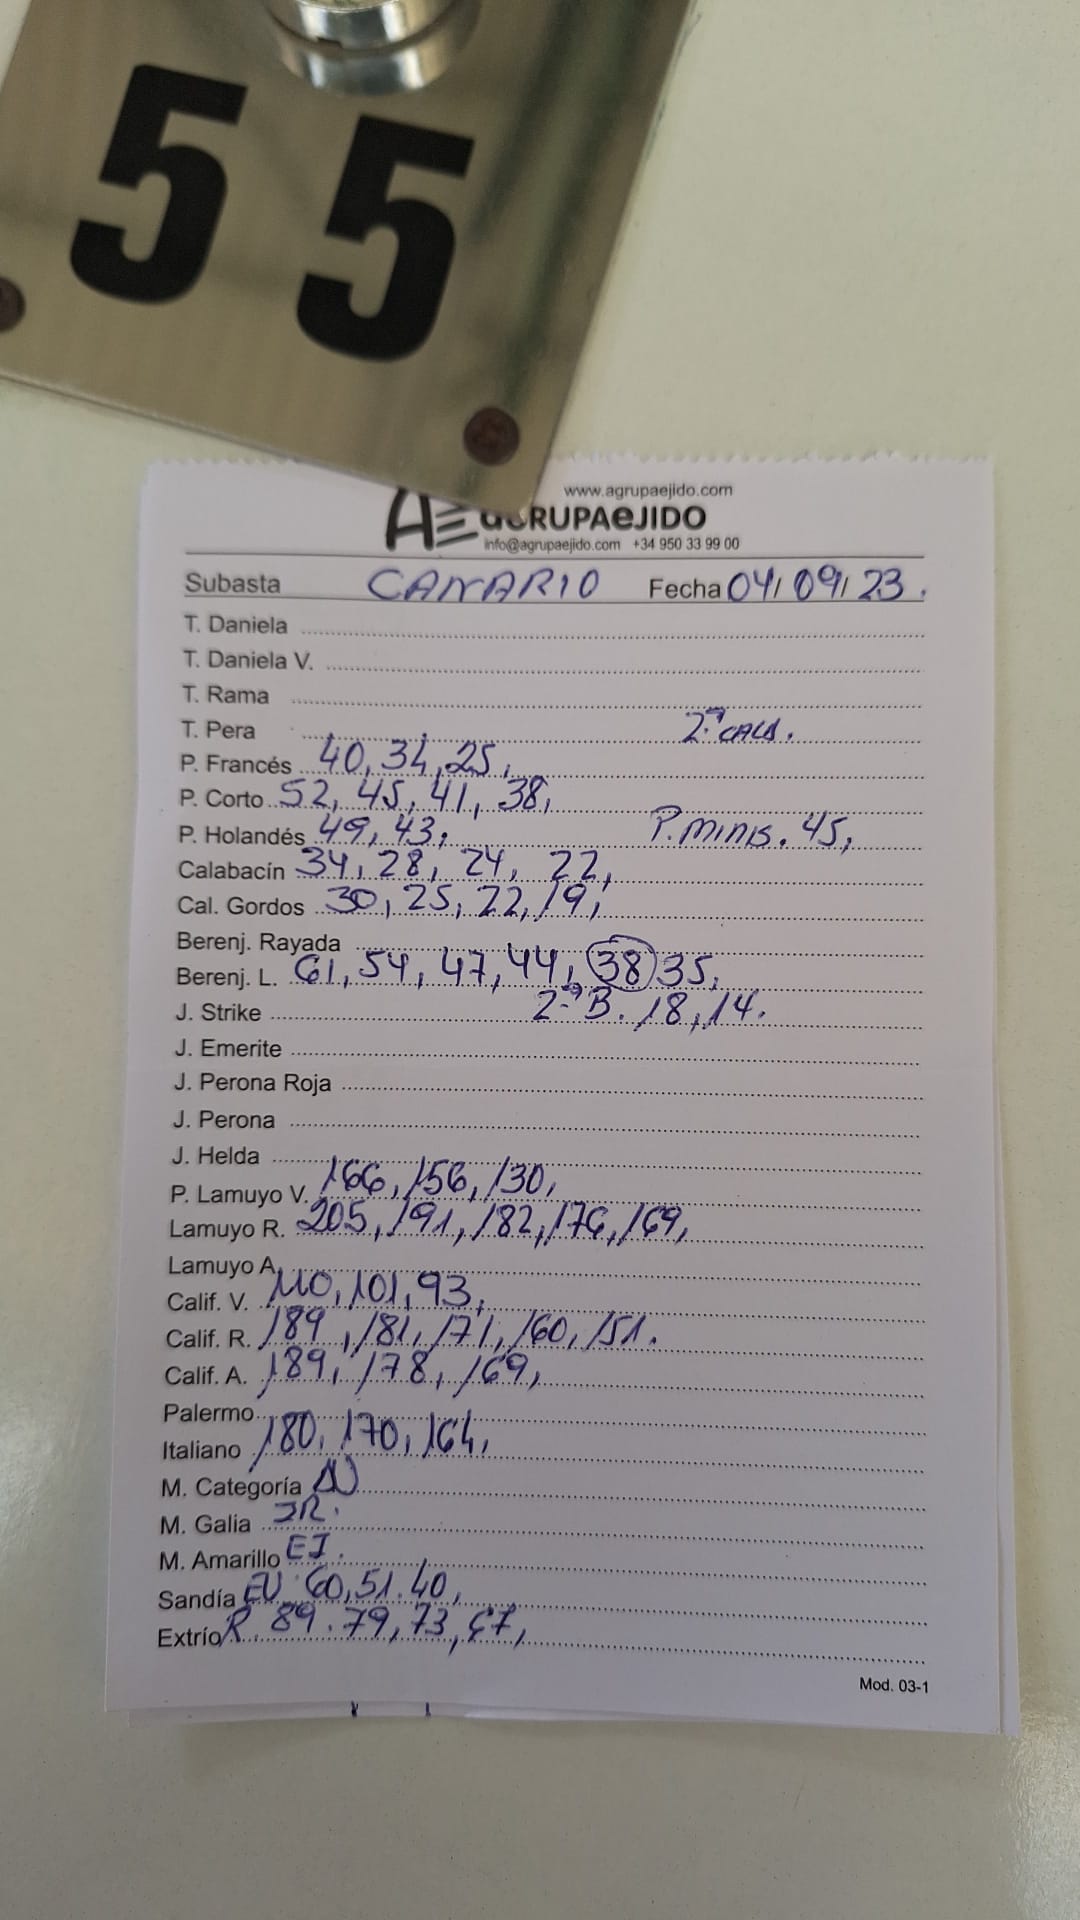 55
www.agrupaejido.com
AGRUPAEJIDO
info@agrupaejido.com +34 950 33 99 00
Subasta CANARIO Fecha 04/09/23.
T. Daniela
T. Daniela V.
T. Rama
T. Pera 2ª CALA.
P. Francés 40, 34, 25,
P. Corto 52, 45, 41, 38,
P. Holandés 49, 43, P. MINIS. 45,
Calabacín 34, 28, 24, 22,
Cal. Gordos 30, 25, 22, 19,
Berenj. Rayada
Berenj. L. 61, 54, 47, 44, 38 35,
J. Strike 2ª B. 18, 14.
J. Emerite
J. Perona Roja
J. Perona
J. Helda
P. Lamuyo V. 166, 156, 130,
Lamuyo R. 205, 191, 182, 176, 169,
Lamuyo A.
Calif. V. 110, 101, 93,
Calif. R. 189, 181, 171, 160, 151.
Calif. A. 189, 178, 169,
Palermo
Italiano 180, 170, 164,
M. Categoría
M. Galia
M. Amarillo EJ.
Sandía 60, 51. 40,
Extrío R. 89. 79, 73, 67,
Mod. 03-1